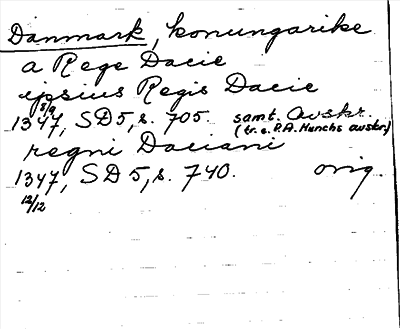 Danmark, konungarike
a Rege Dacie
ipsius Regis Dacie
8/9
1347, SD5, s. 705. samt. avskr.
(tr. e. P.A. Munchs avskr.)
regni Daciani
1347, SD5, s. 740. orig.
12/12